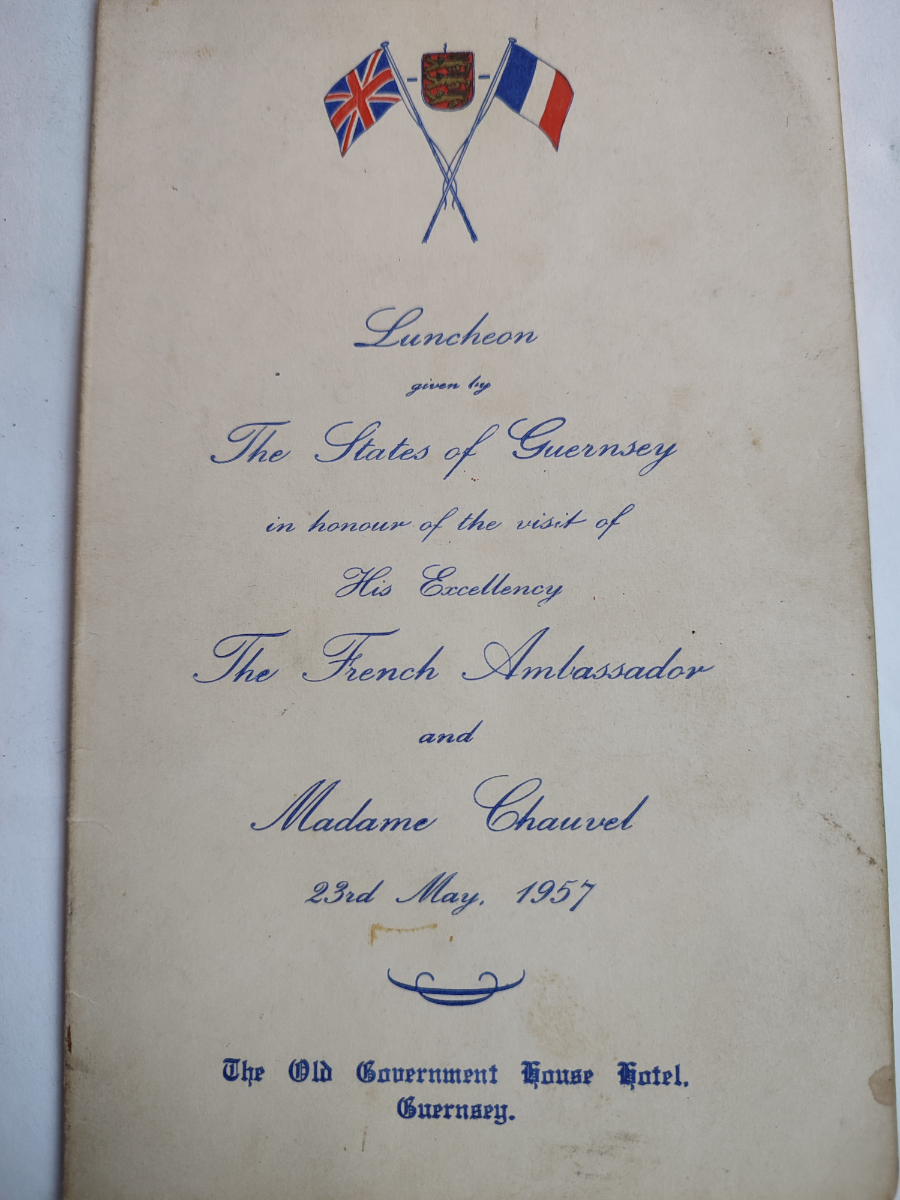 Luncheon
given by
The States of Guernsey
in honour of the visit of
His Excellency
The French Ambassador
and
Madame Chauvel
23rd May, 1957
The Old Government House Hotel.
Guernsey.